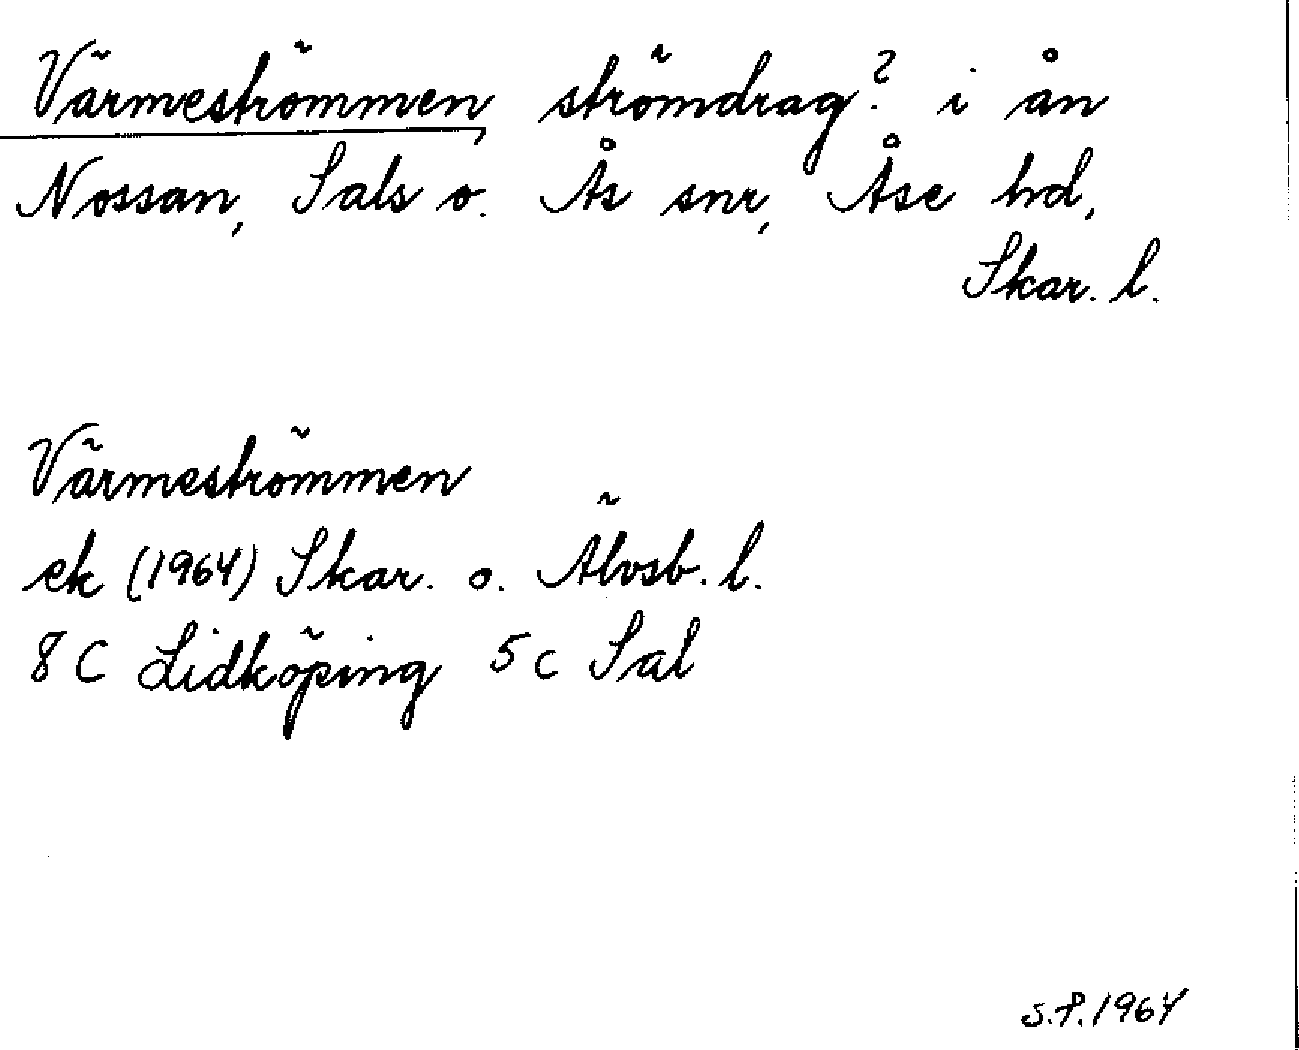 Värmeströmmen, strömdrag? i ån
Nossan, Sals o. Ås snr, Åse hd,
Skar. l.
Värmeströmmen
ek (1964) Skar. o. Älvsb. l.
8 C Lidköping 5 c Sal
S.P. 1964